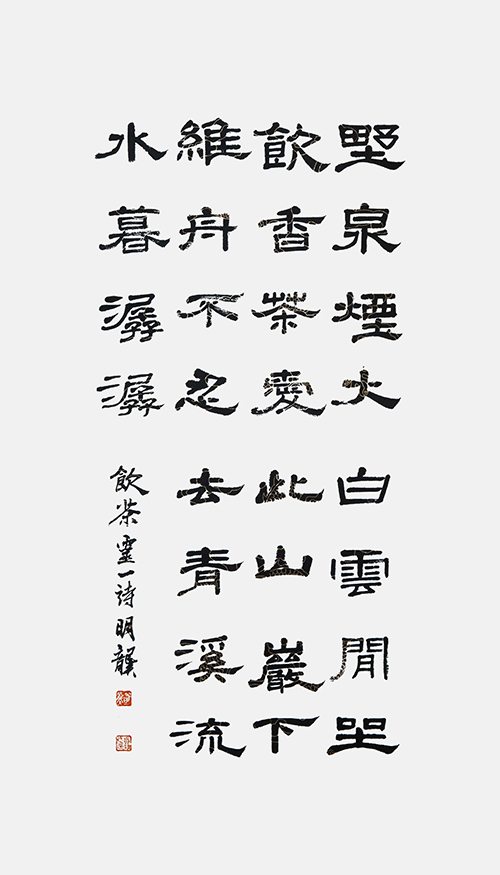 野泉煙火白雲閒坐
飲香茶愛此山巖下
維舟不忍去青溪流
水暮潺潺
飲茶靈一詩明